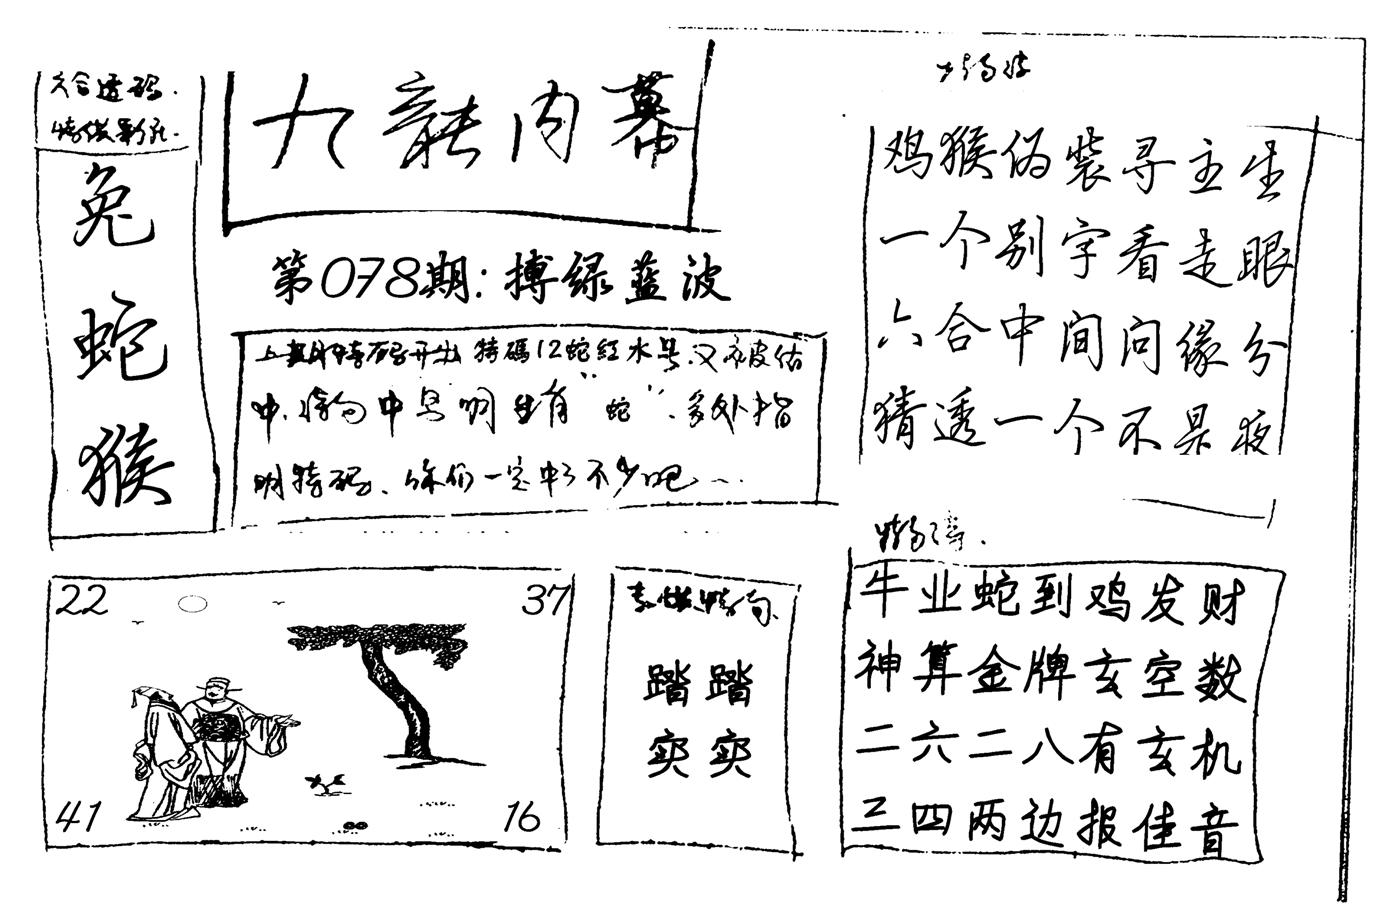 六合透码.
九龍内幕
兔
蛇
猴
第078期:搏绿蓝波
特码开出 特碼12蛇红水号.又被估
中.特句中 明 有“蛇”.多处指
明特码.你们一定中了不少吧...
鸡猴伪装寻主生
一个别字看走眼
六合中间问缘分
猜透一个不是夜
22
37
41
16
特句
踏踏
实实
牛业蛇到鸡发财
神算金牌玄空数
二六二八有玄机
三四两边报佳音